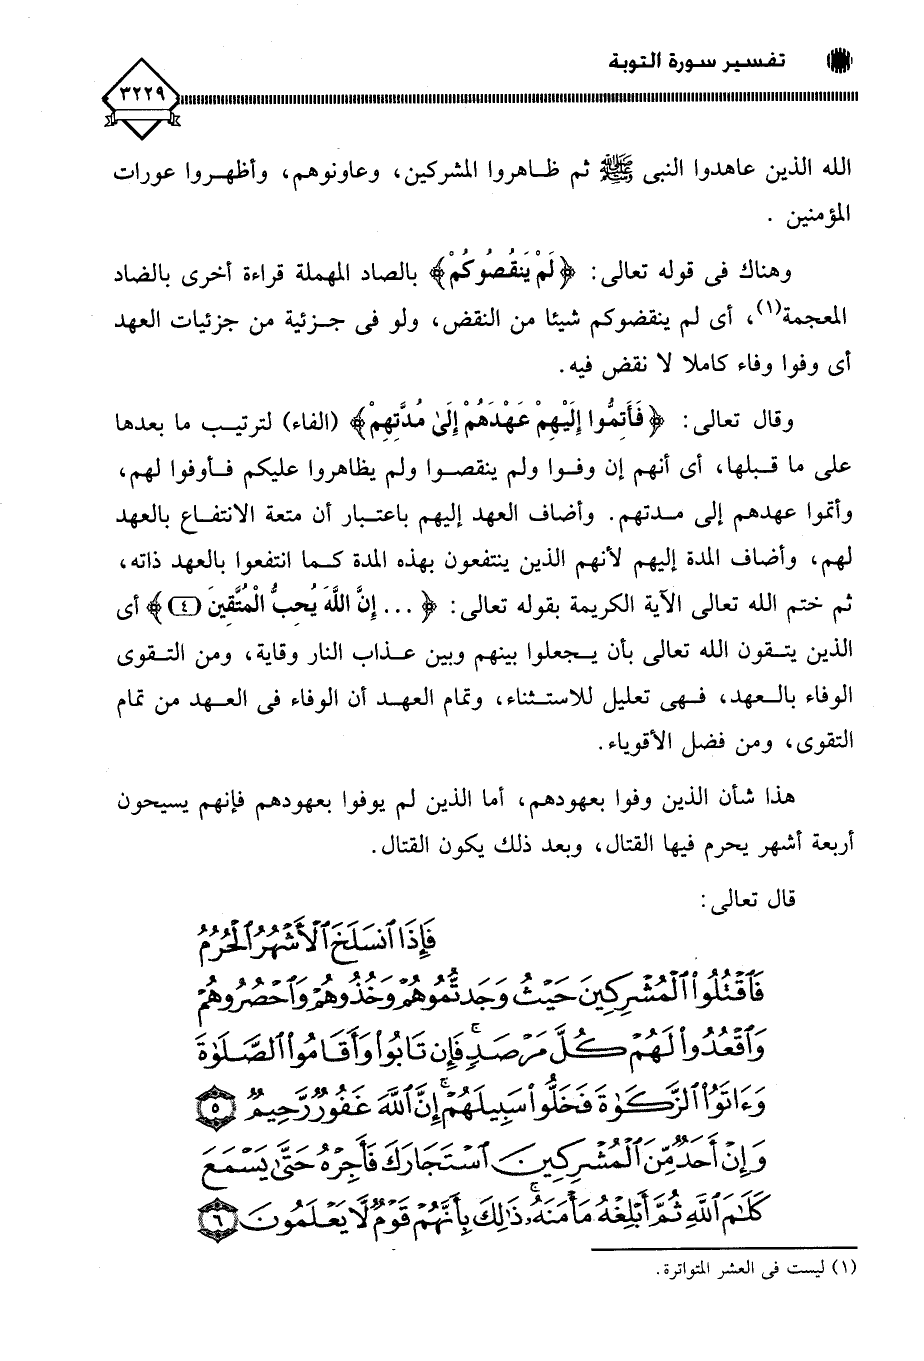 تفسير سورة التوبة
٣٢٢٩
الله الذين عاهدوا النبى ﷺ ثم ظاهروا المشركين، وعاونوهم، وأظهروا عورات
المؤمنين .
وهناك فى قوله تعالى: ﴿لَمْ يَنقُصُوكُمْ﴾ بالصاد المهملة قراءة أخرى بالضاد
المعجمة(١)، أى لم ينقضوكم شيئا من النقض، ولو فى جزئية من جزئيات العهد
أى وفوا وفاء كاملا لا نقض فيه.
وقال تعالى: ﴿فَأَتِمُّوا إِلَيْهِمْ عَهْدَهُمْ إِلَىٰ مُدَّتِهِمْ﴾ (الفاء) لترتيب ما بعدها
على ما قبلها، أى أنهم إن وفوا ولم ينقصوا ولم يظاهروا عليكم فأوفوا لهم،
وأتموا عهدهم إلى مدتهم. وأضاف العهد إليهم باعتبار أن متعة الانتفاع بالعهد
لهم، وأضاف المدة إليهم لأنهم الذين ينتفعون بهذه المدة كما انتفعوا بالعهد ذاته،
ثم ختم الله تعالى الآية الكريمة بقوله تعالى: ﴿ ... إِنَّ اللَّهَ يُحِبُّ الْمُتَّقِينَ (٤)﴾ أى
الذين يتقون الله تعالى بأن يجعلوا بينهم وبين عذاب النار وقاية، ومن التقوى
الوفاء بالعهد، فهى تعليل للاستثناء، وتمام العهد أن الوفاء فى العهد من تمام
التقوى، ومن فضل الأقوياء.
هذا شأن الذين وفوا بعهودهم، أما الذين لم يوفوا بعهودهم فإنهم يسيحون
أربعة أشهر يحرم فيها القتال، وبعد ذلك يكون القتال.
قال تعالى:
فَإِذَا ٱنسَلَخَ ٱلْأَشْهُرُ ٱلْحُرُمُ
فَٱقْتُلُوا۟ ٱلْمُشْرِكِينَ حَيْثُ وَجَدتُّمُوهُمْ وَخُذُوهُمْ وَٱحْصُرُوهُمْ
وَٱقْعُدُوا۟ لَهُمْ كُلَّ مَرْصَدٍۚ فَإِن تَابُوا۟ وَأَقَامُوا۟ ٱلصَّلَوٰةَ
وَءَاتَوُا۟ ٱلزَّكَوٰةَ فَخَلُّوا۟ سَبِيلَهُمْۚ إِنَّ ٱللَّهَ غَفُورٌ رَّحِيمٌ ٥
وَإِنْ أَحَدٌ مِّنَ ٱلْمُشْرِكِينَ ٱسْتَجَارَكَ فَأَجِرْهُ حَتَّىٰ يَسْمَعَ
كَلَٰمَ ٱللَّهِ ثُمَّ أَبْلِغْهُ مَأْمَنَهُۥۚ ذَٰلِكَ بِأَنَّهُمْ قَوْمٌ لَّا يَعْلَمُونَ ٦
(١) ليست فى العشر المتواترة.